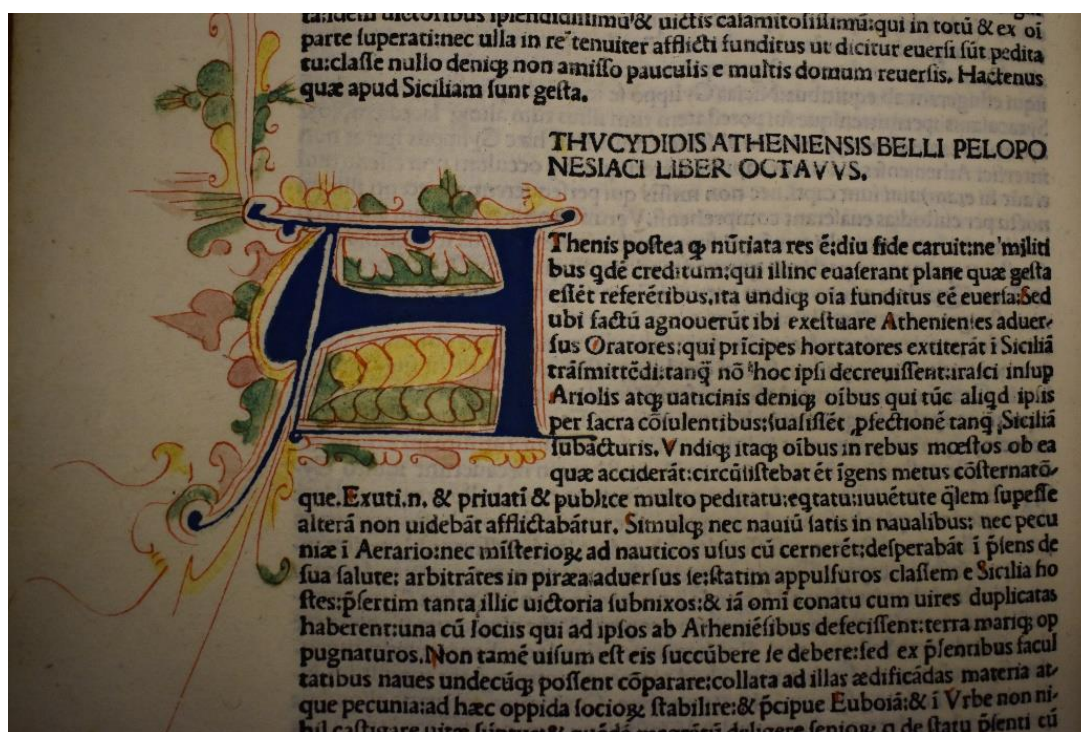 ta:idem uictoribus ſplendidiſſimū & uictis calamitoſiſſimū:qui in totū & ex oī
parte ſuperati:nec ulla in re tenuiter afflicti funditus ut dicitur euerſi ſūt pedita
tu:claſſe nullo deniqꝫ non amiſſo pauculis e multis domum reuerſis. Hactenus
quæ apud Siciliam ſunt geſta.
THVCYDIDIS ATHENIENSIS BELLI PELOPO
NESIACI LIBER OCTAVVS.
AThenis poſtea ꝙ nūtiata res ē:diu fide caruit:ne militi
bus qdē creditum:qui illinc euaſerant plane quæ geſta
eſſēt referētibus.ita undiqꝫ oīa funditus eē euerſa:Sed
ubi factū agnouerūt ibi exeſtuare Athenienſes aduer-
ſus Oratores:qui prīcipes hortatores extiterāt ī Siciliā
trāſmittēdi:tanq̄ nō hoc ipſi decreuiſſent:iraſci inſup
Ariolis atqꝫ uaticinis deniqꝫ oībus qui tūc aliqd ipſis
per ſacra cōſulentibus:ſuaſiſſēt ꝓfectionē tanq̄ Siciliā
ſubacturis. Vndiqꝫ itaqꝫ oībus in rebus mœſtos ob ea
quæ acciderāt:circūſiſtebat ēt īgens metus cōſternatō-
que.Exuti.n. & priuati & publice multo peditatu:eqtatu:iuuētute q̄lem ſupeſſe
alterā non uidebāt afflictabātur. Simulqꝫ nec nauiū ſatis in naualibus: nec pecu
niæ ī Aerario:nec miſterioꝝ ad nauticos uſus cū cernerēt:deſperabāt ī p̄ſens de
ſua ſalute: arbitrātes in piræa aduerſus ſe:ſtatim appulſuros claſſem e Sicilia ho
ſtes:p̄ſertim tanta illic uictoria ſubnixos:& iā omī conatu cum uires duplicatas
haberent:una cū ſociis qui ad ipſos ab Atheniēſibus defeciſſent:terra mariqꝫ op
pugnaturos.Non tamē uiſum eſt eis ſuccūbere ſe debere:ſed ex p̄ſentibus facul
tatibus naues undecūqꝫ poſſent cōparare:collata ad illas ædificādas materia at-
que pecunia:ad hæc oppida ſocioꝝ ſtabilire:& p̄cipue Euboiā:& ī Vrbe non ni-
hil caſtigare deligere ſenioꝝ de ſtatu p̄ſenti cū